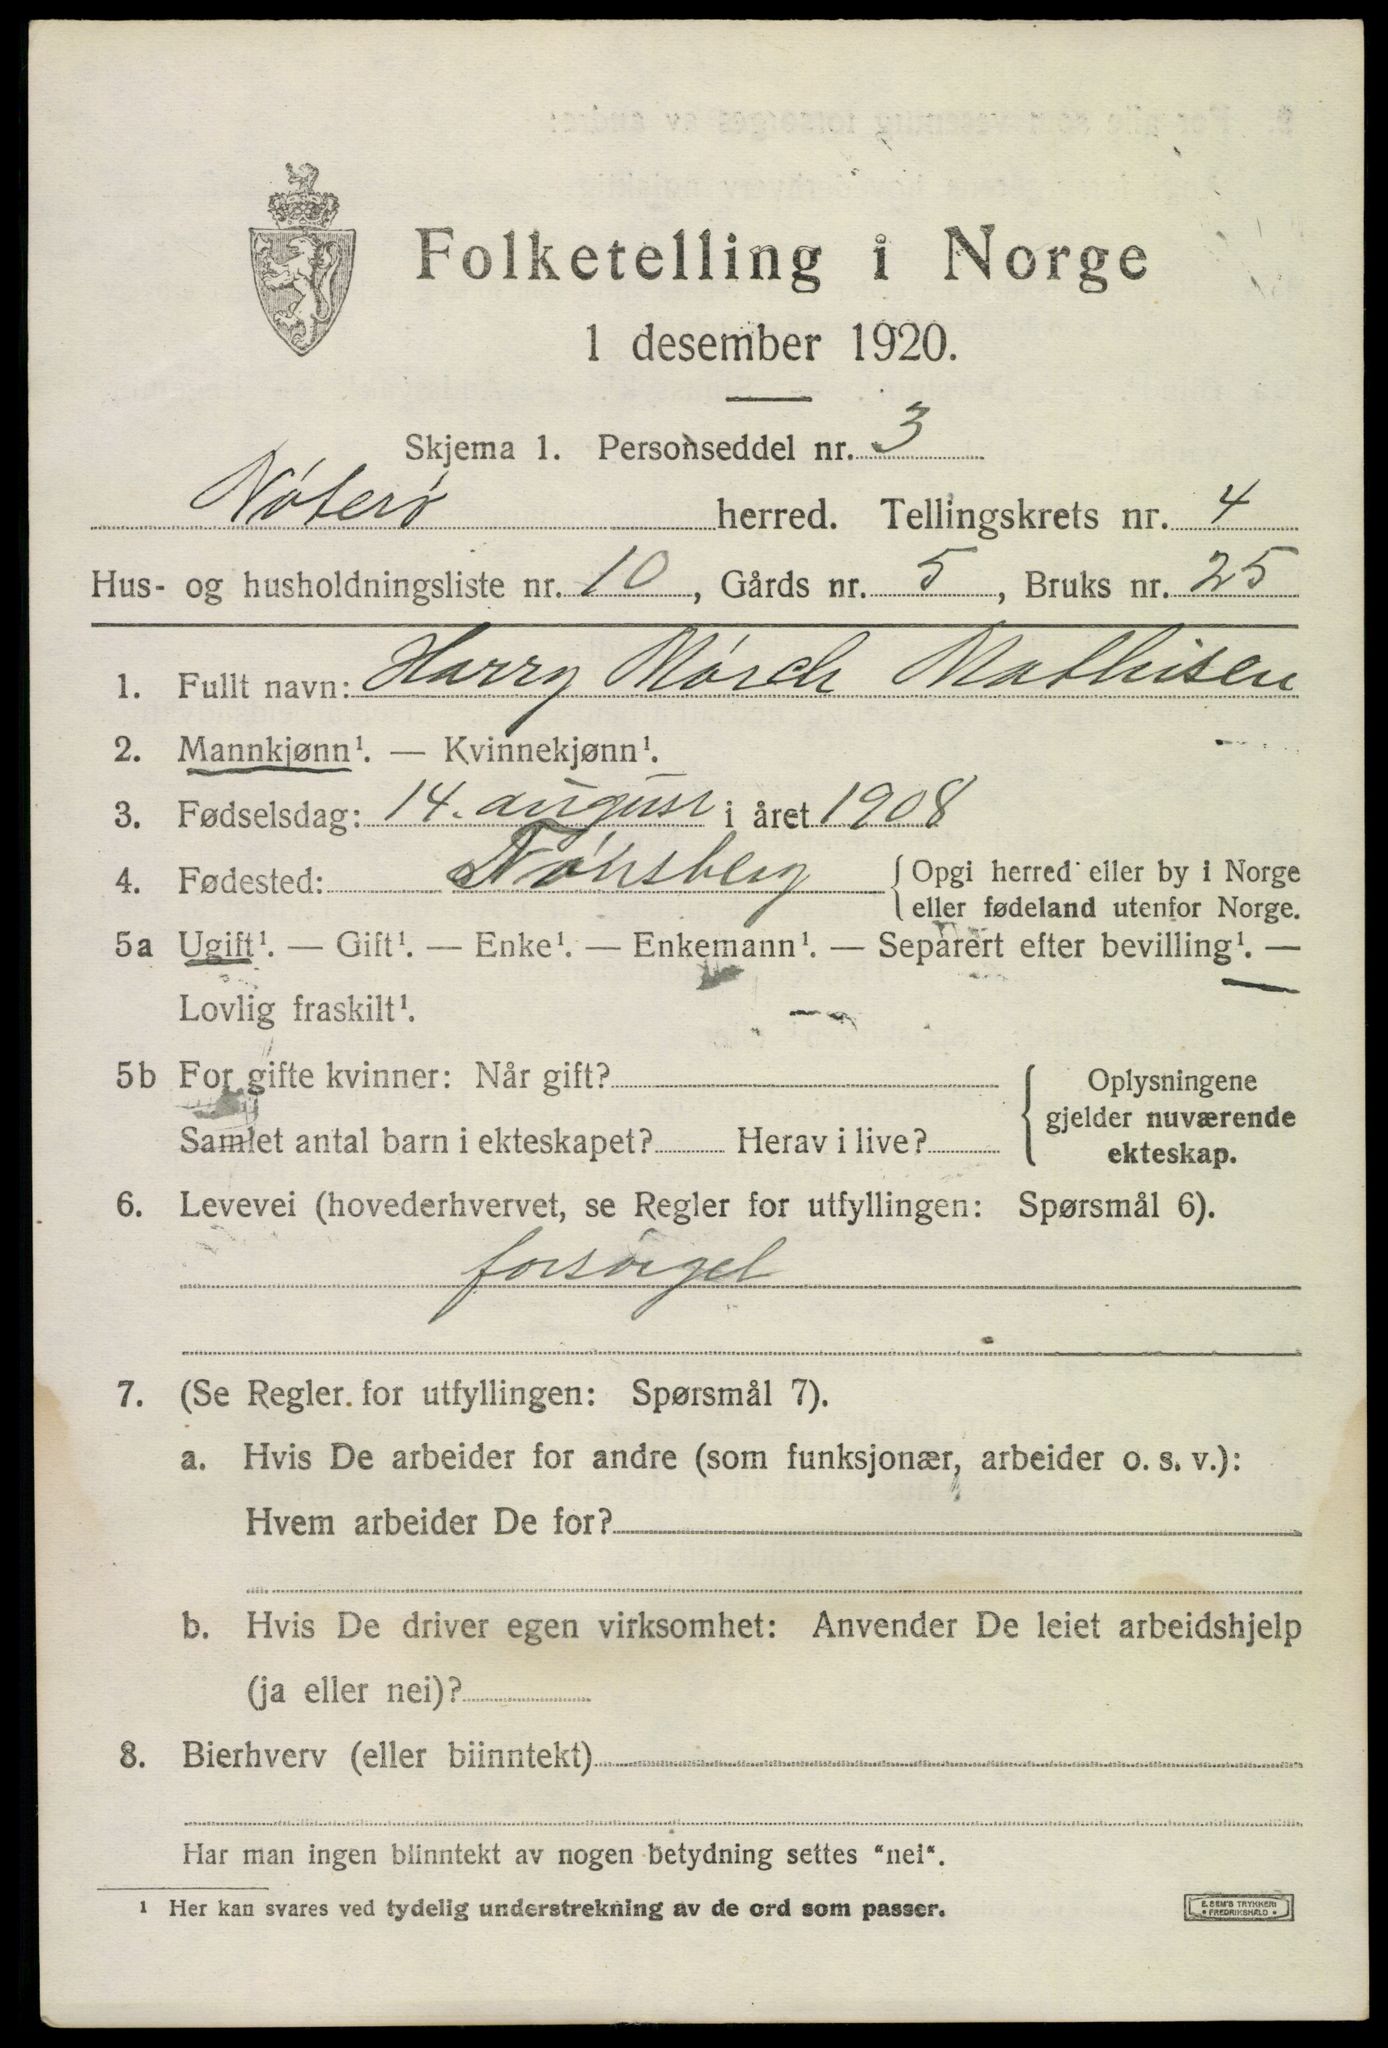 Folketelling i Norge
1 desember 1920.
Skjema 1. Personseddel nr. 3
Nøterø herred. Tellingskrets nr. 4
Hus- og husholdningsliste nr. 10, Gårds nr. 5, Bruks nr. 25
1. Fullt navn: Harry Mørch Mathisen
2. Mannkjønn¹. — Kvinnekjønn¹.
3. Fødselsdag: 14. august i året 1908
4. Fødested: Tønsberg { Opgi herred eller by i Norge
eller fødeland utenfor Norge.
5a Ugift¹. — Gift¹. — Enke¹. — Enkemann¹. — Separert efter bevilling¹. —
Lovlig fraskilt¹.
5b For gifte kvinner: Når gift?
Samlet antal barn i ekteskapet? Herav i live?
{ Oplysningene
gjelder nuværende
ekteskap.
6. Levevei (hovederhvervet, se Regler for utfyllingen: Spørsmål 6).
forsørget
7. (Se Regler for utfyllingen: Spørsmål 7).
a. Hvis De arbeider for andre (som funksjonær, arbeider o. s. v.):
Hvem arbeider De for?
b. Hvis De driver egen virksomhet: Anvender De leiet arbeidshjelp
(ja eller nei)?
8. Bierhverv (eller biinntekt)
Har man ingen biinntekt av nogen betydning settes "nei".
1 Her kan svares ved tydelig understrekning av de ord som passer.
E. SEM'S TRYKKERI
FREDRIKSHALD